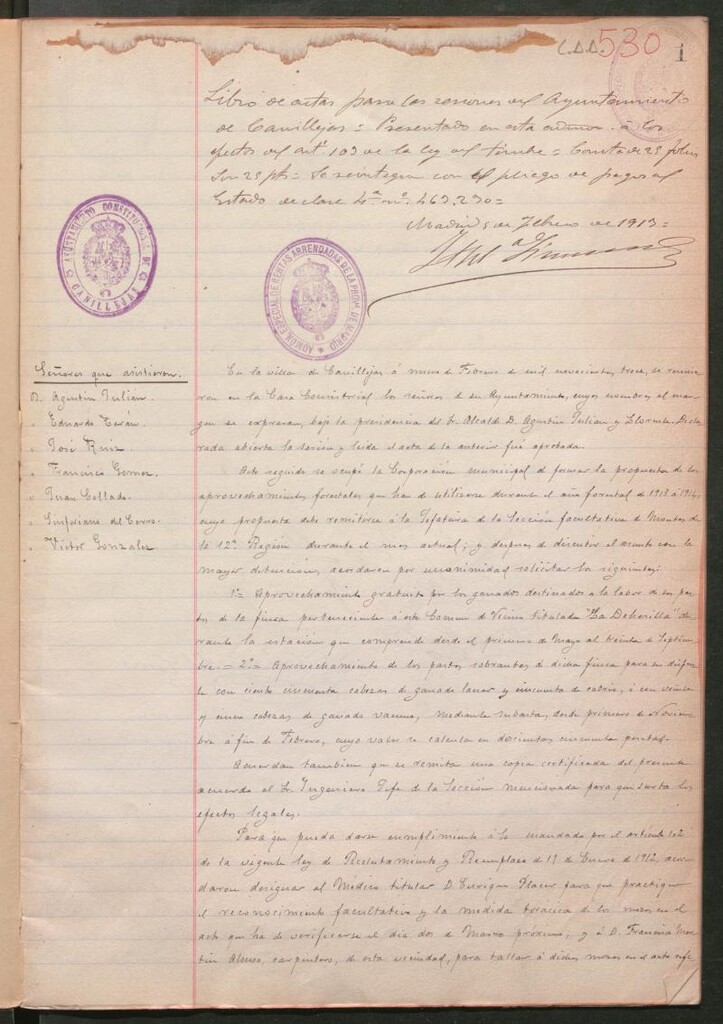 C.D.D. 530 1
Libro de actas para las sesiones del Ayuntamiento
de Canillejas = Presentado en esta admon. á los
efectos del artº 103 de la ley del timbre = Consta de 25 folios
Son 25 pts = Se reintegra con el pliego de pagos al
Estado de clase 4ª nº 463.230 =
Madrid 5 de Febrero de 1913 =
AYUNTAMIENTO CONSTITUCIONAL DE CANILLEJAS
ADMON. ESPECIAL DE RENTAS ARRENDADAS DE LA PROVª DE MADRID
Señores que asistieron.
D. Agustín Julián.
" Eduardo Terán.
" José Ruiz
" Francisco Gomez.
" Juan Collado.
" Sinforiano del Cerro.
" Víctor Gonzalez
En la villa de Canillejas á nueve de Febrero de mil novecientos trece, se reunie-
ron en la Casa Consistorial los señores de su Ayuntamiento, cuyos nombres al mar-
gen se expresan, bajo la presidencia del Sr. Alcalde D. Agustín Julian y Llorente. Decla-
rada abierta la sesión y leída el acta de la anterior fué aprobada.
Acto seguido se ocupó la Corporación municipal de formar la propuesta de los
aprovechamientos forestales que han de utilizarse durante el año forestal de 1913 á 1914,
cuya propuesta debe remitirse á la Jefatura de la Sección facultativa de Montes de
la 12ª Región durante el mes actual; y despues de discutir el asunto con la
mayor detencion, acordaron por unanimidad solicitar lo siguiente:
1º = Aprovechamiento gratuito por los ganados destinados a la labor de los pas-
tos de la finca perteneciente á este Comun de Vecinos titulada "La Dehesilla" du-
rante la estación que comprende desde el primero de Mayo al treinta de Septiem-
bre. = 2º = Aprovechamiento de los pastos sobrantes de dicha finca para su disfru-
te con ciento cincuenta cabezas de ganado lanar y cincuenta de cabrío, ó con veinte
y cinco cabezas de ganado vacuno, mediante subasta, desde primero de Noviem-
bre á fin de Febrero, cuyo valor se calcula en doscientas cincuenta pesetas.
Acuerdan tambien que se remita una copia certificada del presente
acuerdo al Sr. Ingeniero Jefe de la Sección mencionada para que surta los
efectos legales.
Para que pueda darse cumplimiento á lo mandado por el artículo
de la vigente ley de Reclutamiento y Reemplazo de 19 de Enero de 1912, acor-
daron designar al Médico titular D. Enrique para que practique
el reconocimiento facultativo y la medida torácica de los mozos en el
acto que ha de verificarse el día dos de Marzo próximo, y á D. Francisco Mar-
tín Alonso, carpintero, de esta vecindad, para tallar á dichos mozos en el acto refe-